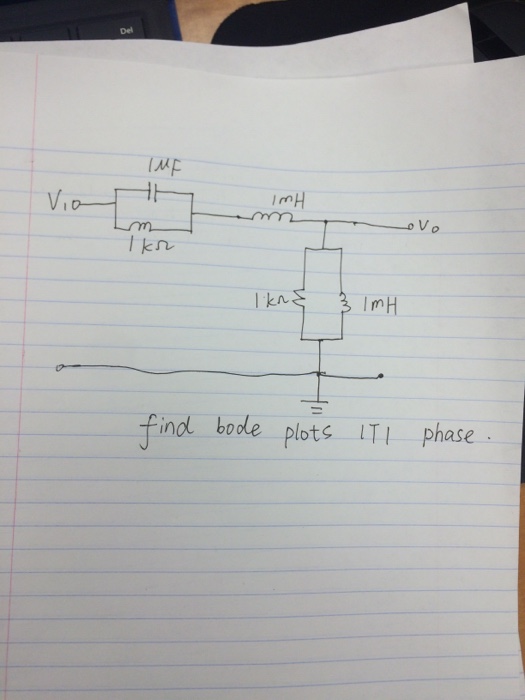 Del
1MF
Vi
1mH
Vo
1kΩ
1kΩ
1mH
find bode plots |T| phase.